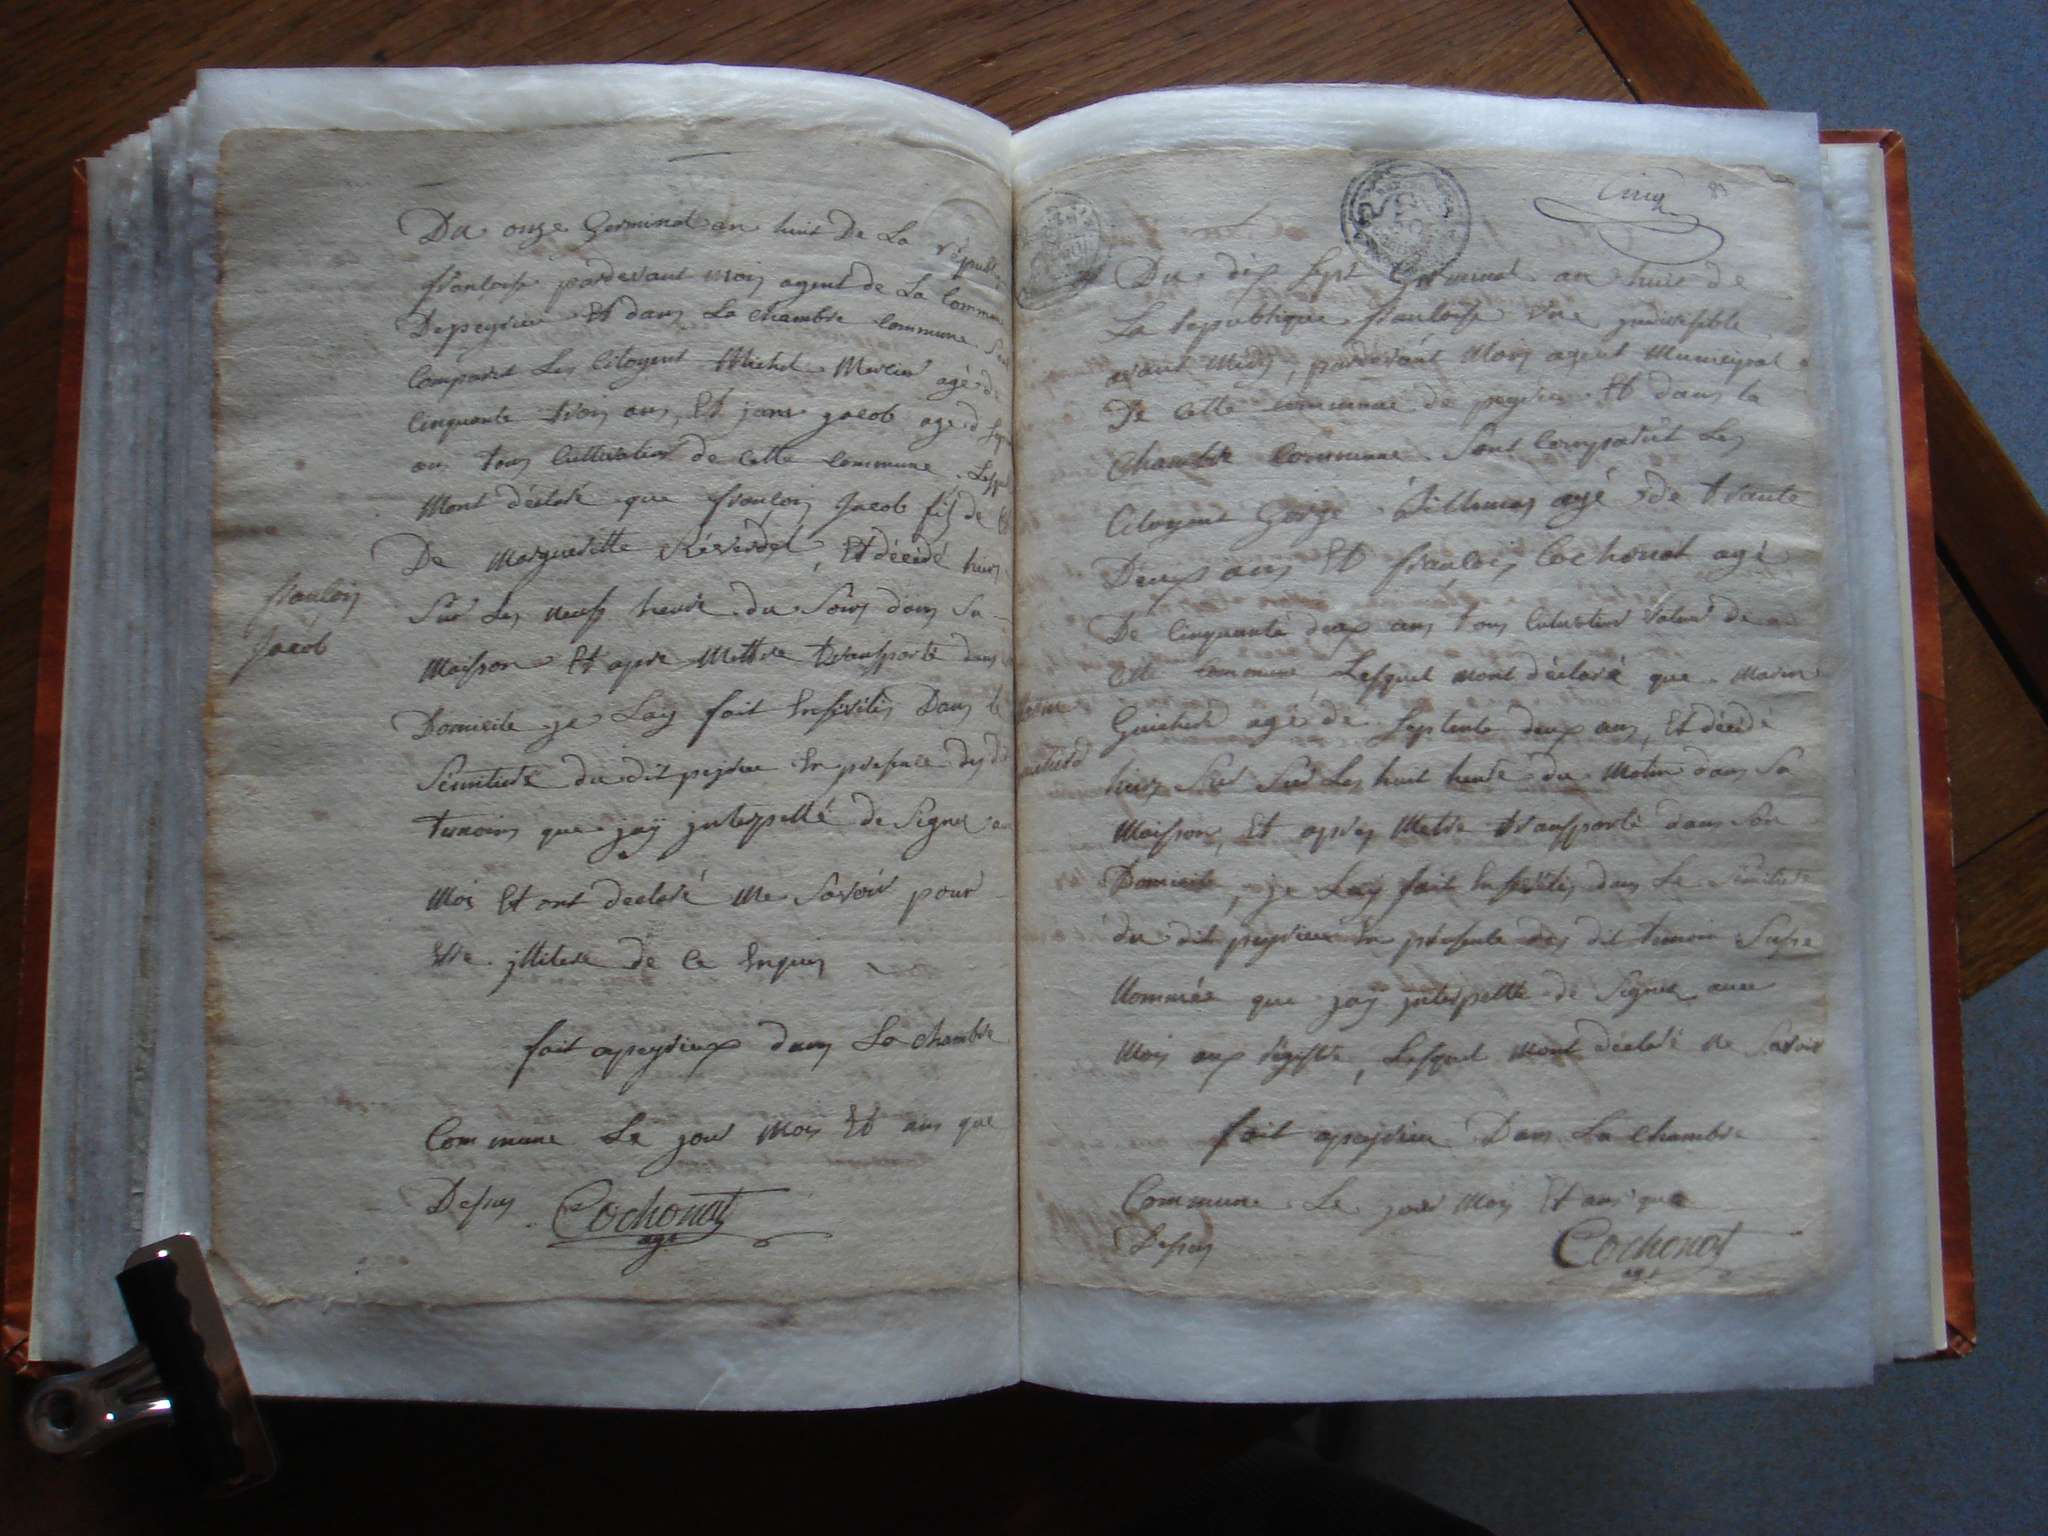 Du onze Germinal an huit De La républi
francoise pardevant mois agent de La Commune
Depeyrieu Et dans La chambre Commune Sont
Comparut Les Citoyent Michel Mercier agé de
Cinquante trois ans, Et jame jacob agé d
ans tous Cultivateur de cette Commune Lesquel
Mont déclaré que francois Jacob fils de
De Margueritte Réverdel, Et décédé hiers
Sur Les neuf heure du Soirs dans Sa
Maisson Et apre Mettre transporté dans
Domicile je Lay fait Ensévélis Dans le
Séimitiere du dit peyrieu En presence des dit
temoins que jay jnterpellé de Signer a
Mois Et ont declaré Ne Savoir pour
Etre jllitere de Ce Enquis
fait apeyrieux dans La Chambre
Commune Le jour Mois Et ans que
Desus Cochonat
agt
francois
Jacob
Cinq
Du dix Sept Germinal an huit de
La republique francoise Une jndivisible
avant Midy, pardevant Mois agent Municipal
De Cette Commune de peyrieu Et dans la
Chambre Commune Sont Comparut Les
Citoyent George Billemas agé de trante
Deux ans Et francois Cochonat agé
De Cinquante deux ans tous Cultivateur de
Cette Commune Lesquel Mont déclaré que Marin
Guicherd agé de Septente deux ans, Et décédé
hiers Sur Les huit heure du Matin dans Sa
Maisson, Et apres Metre transporté dans Son
Domicile, je Lay fait Ensévélis dans Le Séimitiere
du dit peyrieu En présente des dit temoin Susu
Nommée que jay jnterpellé de Signer avec
Mois aux régistre, Lesquel Mont déclaré ne Savoir
fait apeyrieu Dans La Chambre
Commune Le jour Mois Et ans que
Desus Cochonat
agt